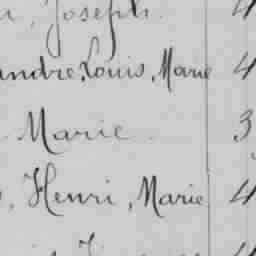 Joseph. 4
andre, Louis, Marie 4
Marie 3
, Henri, Marie 4